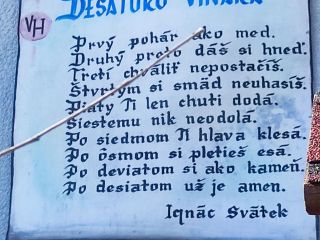 DESATORO VINÁRA
VH
Prvý pohár ako med.
Druhý preto dáš si hneď.
Tretí chváliť nepostačíš.
Štvrtým si smäd neuhasíš.
Piaty Ti len chuti dodá.
Šiestemu nik neodolá.
Po siedmom Ti hlava klesá.
Po ôsmom si pletieš esá.
Po deviatom si ako kameň.
Po desiatom už je amen.
Ignác Svätek